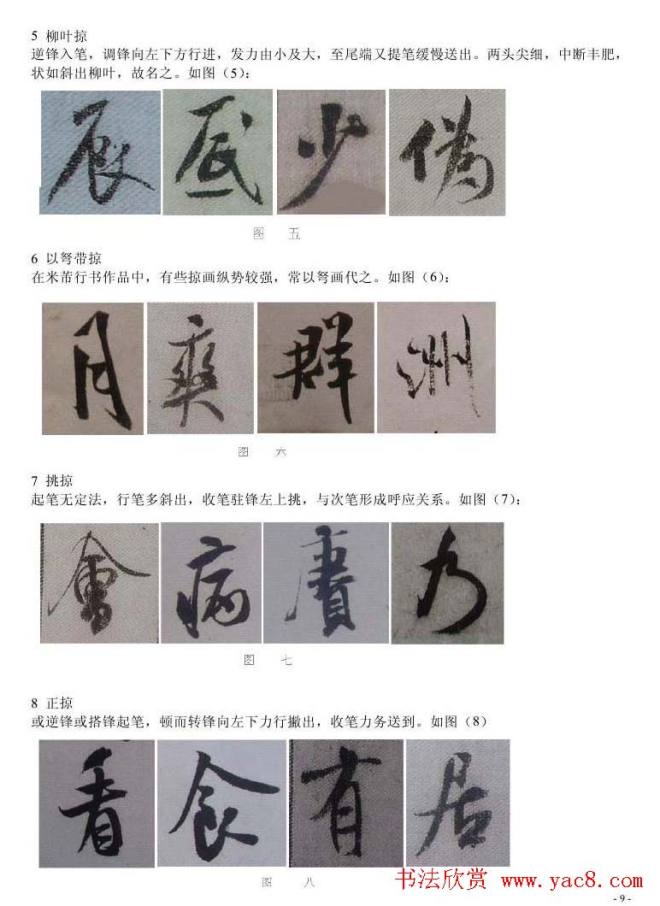 5 柳叶掠
逆锋入笔，调锋向左下方行进，发力由小及大，至尾端又提笔缓慢送出。两头尖细，中断丰肥，
状如斜出柳叶，故名之。如图（5）：
辰 少 偽
图 五
6 以弩带掠
在米芾行书作品中，有些掠画纵势较强，常以弩画代之。如图（6）：
月 爽 群 洲
图 六
7 挑掠
起笔无定法，行笔多斜出，收笔驻锋左上挑，与次笔形成呼应关系。如图（7）：
會 病
图 七
8 正掠
或逆锋或搭锋起笔，顿而转锋向左下力行撇出，收笔力务送到。如图（8）
看 食 有 居
图 八
书法欣赏 www.yac8.com
- 9 -